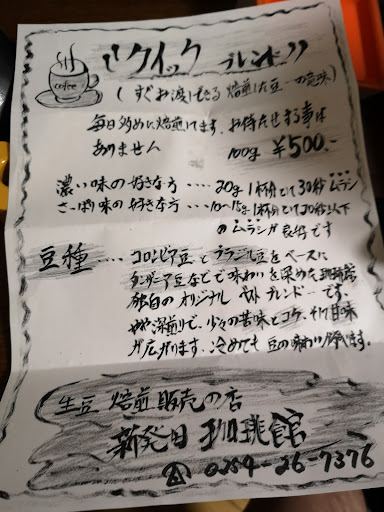 coffee
"クイック ブレンド"
(すぐお渡しできる焙煎した豆 の意味)
毎日多めに焙煎してます。お待たせする事は
ありません 100g ¥500.-
濃い味の好きな方 ‥‥ 20g 1杯分として30秒 ムラシ
さっぱり味の好き方 ‥‥ 10~15g 1杯分として20秒以下
のムラシが最適です
豆種 ‥‥ コロンビア豆とブラジル豆をベースに
タンザニア豆などで味わいを深めた珈琲館
独自のオリジナル ベストブレンドーです。
やや深煎りで、少々の苦味とコク、そして甘味
が広がります。冷めても 豆の味わい
生豆 焙煎販売の店
新発田 珈琲館
☎ 0254-26-7376